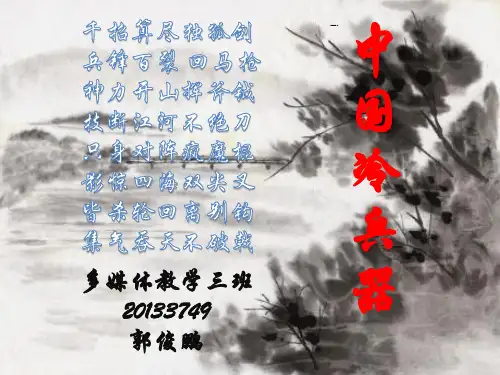 中国冷兵器
千招算尽独孤剑
兵锋百裂回马枪
神力开山挥斧钺
技断江河不绝刀
只身对阵疯魔棍
影惊四海双尖叉
皆杀轮回离别钩
集气吞天不破戟
多媒体教学三班
20133749
郭俊鹏